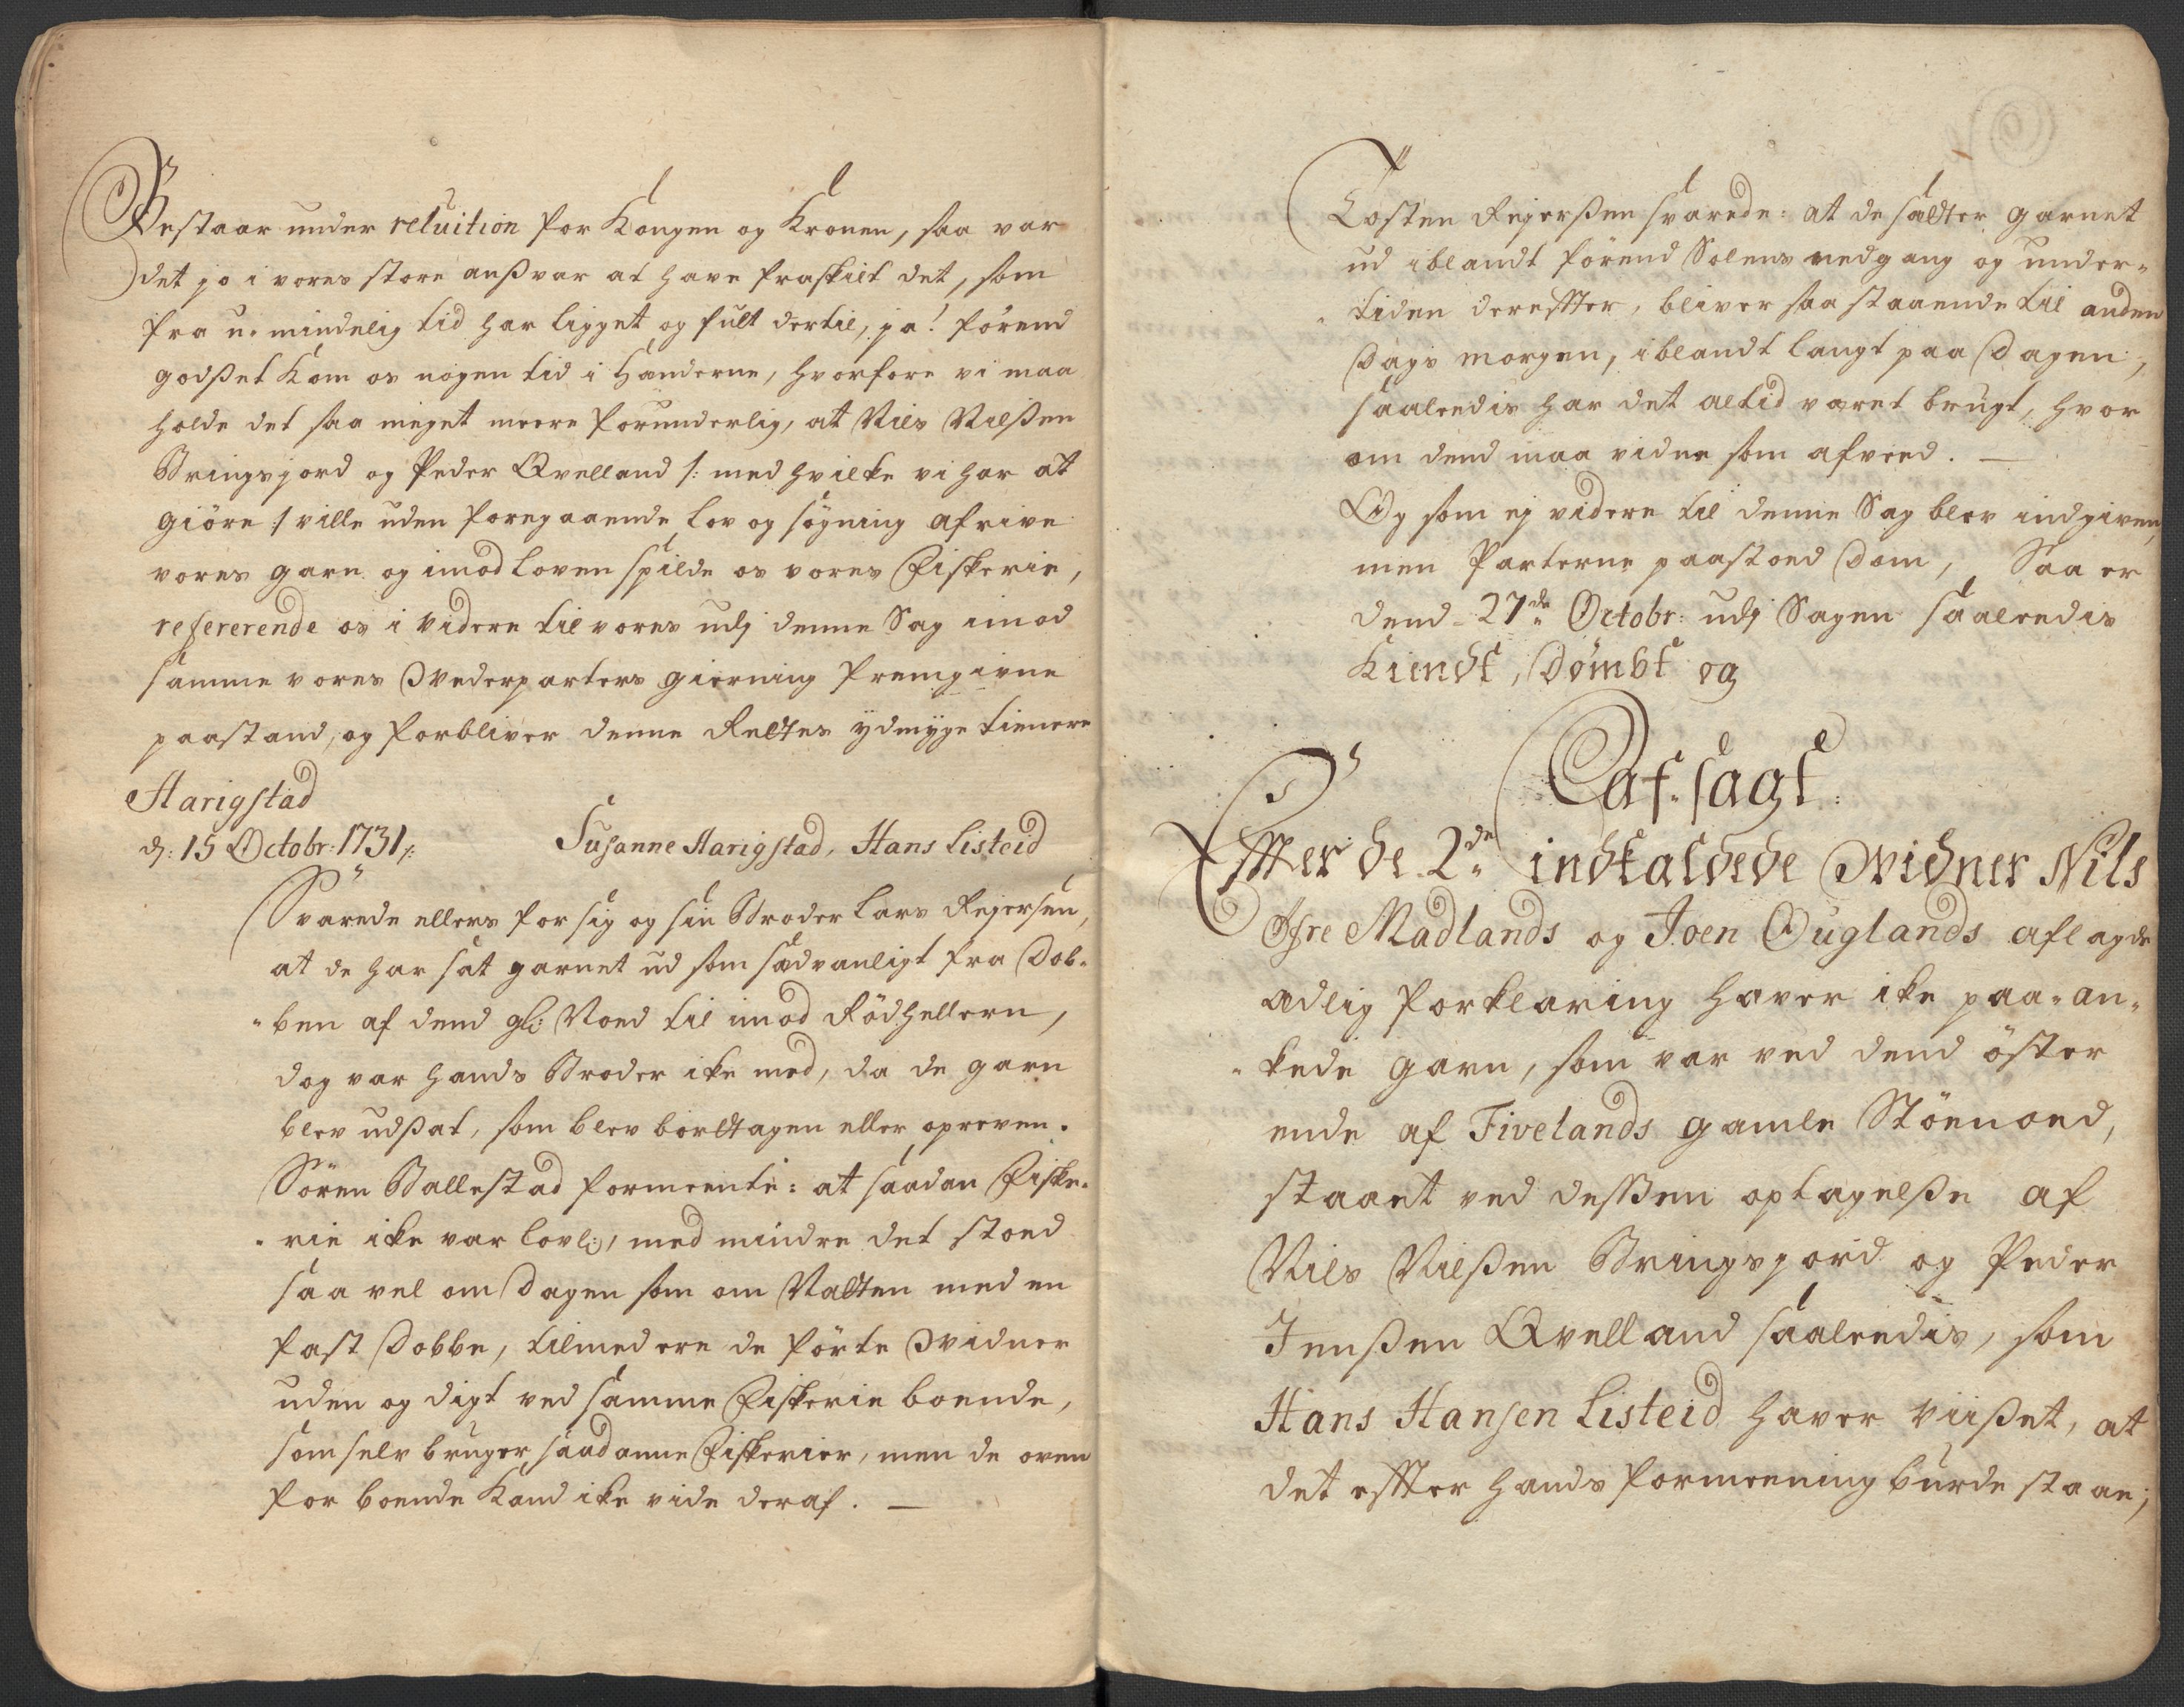 Bestaar under reluition for Kongen og Kronen, saa var
det jo i vores store ansvar at have fraskilt det, som
fra u-mindelig tid har ligget og fult dertil, ja! förend
godset Kom os nogen tid i Hænderne, hvorfore vi maa
holde det saa meget meere forunderlig, at Nils Nilßen
Bringsjord og Peder Qvelland /: med hvilke vi har at
giöre :/ ville uden foregaaende Lov og søgning afrive
vores garn og imod Loven spilde os vores Fiskerie,
refererende os i videre til vores udj denne Sag imod
samme vores Vederparters gierning fremgivne
paastand, og forbliver denne Rettes ydmyge tienere
Harigstad
d: 15 Octobr: 1731/: Susanne Harigstad, Hans Listeid
Svarede ellers for sig og sin Broder Lars Rejersen,
at de har sat garnet ud som sædvanligt fra Dob-
-ben af dend gl: Noed til imod Rödhellern,
dog var hands Broder ike med, da de garn
blev udßat, som blev borttagen eller opreven.
Sören Ballestad formeente: at saadan Fiske-
-rie ike var lovl:, med mindre det stoed
saa vel om Dagen som om Natten med en
fast Dobbe, tilmed ere de förte Vidner
uden og digt ved samme Fiskerie boende,
som selv bruger saadanne Fiskerier, men de oven
for boende Kand ike vide deraf. —
Tosten Rejerßen svarede: at de sætter garnet
ud iblandt förend Solens nedgang og under-
-tiden derefter, bliver saa staaende til anden
Dags morgen, iblandt langt paa Dagen,
saaleedis har det altid været brugt, hvor
om dend maa vidne som afveed. —
Og som ej videre til denne Sag blev indgiven,
men Parterne paastoed Dom, Saa er
dend 27de Octobr: udj Sagen saaleedis
Kiendt, Dömbt og
af-sagt:
Efter de 2de indkaldede Vidner Nils
Öfre Madlands og Joen Öuglands aflagde
ædlig forklaring haver ike paa-an-
-kede garn, som var ved dend öster
ende af Fivelands gamle Stöenoed,
staaet ved deßen optagelße af
Nils Nilßen Bringsjord og Peder
Jenßen Qvelland saaleedis, som
Hans Hansen Listeid haver viißet, at
det efter hands formeening burde staae;